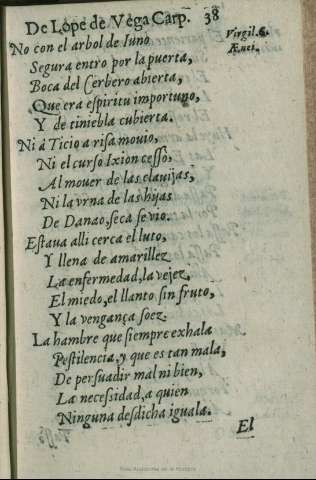 De Lope de Vega Carp. 38
No con el arbol de Iuno
Virgil. 6.
Segura entro por la puerta,
Ænei.
Boca del Cerbero abierta,
Que era espiritu importuno,
Y de tiniebla cubierta.
Ni a Ticio a risa mouio,
Ni el curso Ixion cessò,
Al mouer de las clauijas,
Ni la vrna de las hijas
De Danao, seca se vio.
Estaua alli cerca el luto,
Y llena de amarillez
La enfermedad, la vejez,
El miedo, el llanto sin fruto,
Y la vengança soez.
La hambre que siempre exhala
Pestilencia, y que es tan mala,
De persuadir mal ni bien,
La necessidad, a quien
Ninguna desdicha iguala.
El